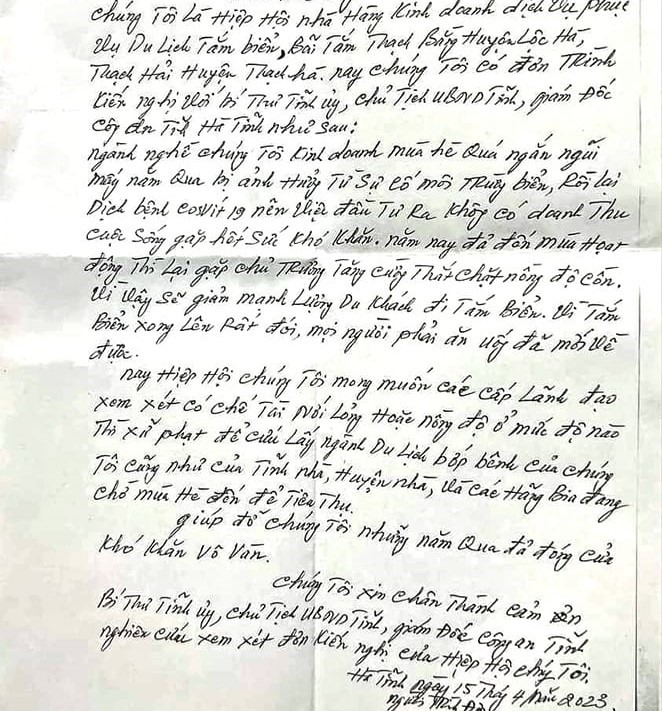 chúng Tôi Là Hiệp Hội nhà Hàng Kinh doanh dịch Vụ phục
Vụ Du Lịch Tắm biển, Bãi Tắm Thạch Bằng Huyện Lộc Hà,
Thạch Hải Huyện Thạch hà. nay chúng Tôi có đơn Trình
Kiến nghị với bí Thư Tỉnh ủy, chủ Tịch UBND Tỉnh, giám Đốc
Công an Tỉnh Hà Tĩnh như sau:
ngành nghề chúng Tôi Kinh doanh mùa hè Quá ngắn ngủi
mấy năm Qua bị ảnh Hưởng Từ Sự cố môi Trường biển, Rồi lại
Dịch bệnh Cosvit 19 nên Việc đầu Tư Ra Không có doanh Thu
cuộc Sống gặp hết Sức Khó Khăn. năm nay đã đến mùa Hoạt
động Thì Lại gặp chủ Trương Tăng cường Thắt chặt nồng độ cồn.
Vì Vậy Sẽ giảm mạnh Lượng Du Khách đi Tắm Biển. Vì Tắm
Biển xong Lên Rất đói, mọi người phải ăn uống đã mới Về
được.
nay Hiệp Hội chúng Tôi mong muốn các cấp Lãnh đạo
xem xét có chế Tài Nới Lỏng Hoặc nồng độ ở mức độ nào
Thì xử phạt để cứu Lấy ngành Du Lịch bấp bênh của chúng
Tôi cũng như của Tỉnh nhà, Huyện nhà, Và các Hãng Bia đang
chờ mùa Hè đến để Tiêu Thụ.
giúp đỡ chúng Tôi những năm Qua đã đóng cửa
Khó Khăn Vô Vàn.
chúng Tôi xin Chân Thành cảm ơn
Bí Thư Tỉnh ủy, chủ Tịch UBND Tỉnh, giám Đốc Công an Tỉnh
nghiên cứu xem xét đơn Kiến nghị của Hiệp Hội chúng Tôi.
Hà Tĩnh ngày 15 Tháng 4 Năm 2023.
người